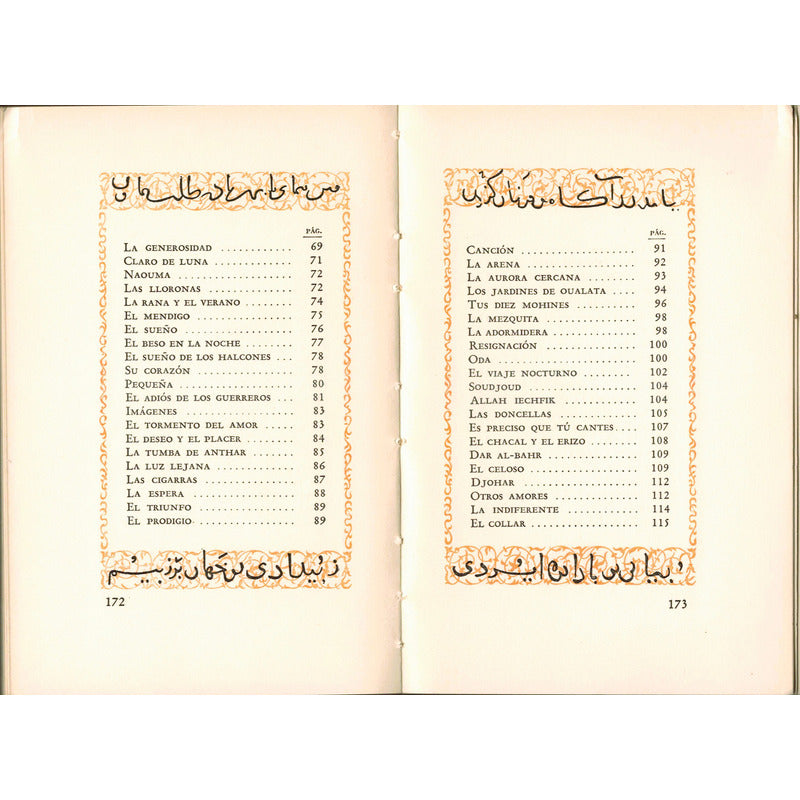 PÁG.
LA GENEROSIDAD ............ 69
CLARO DE LUNA ............ 71
NAOUMA .................. 72
LAS LLORONAS ............. 72
LA RANA Y EL VERANO ........ 74
EL MENDIGO ............... 75
EL SUEÑO ................. 76
EL BESO EN LA NOCHE ........ 77
EL SUEÑO DE LOS HALCONES ... 78
SU CORAZÓN ............... 78
PEQUEÑA .................. 80
EL ADIÓS DE LOS GUERREROS ... 81
IMÁGENES ................. 83
EL TORMENTO DEL AMOR ..... 83
EL DESEO Y EL PLACER ........ 84
LA TUMBA DE ANTHAR ....... 85
LA LUZ LEJANA ............. 86
LAS CIGARRAS .............. 87
LA ESPERA ................. 88
EL TRIUNFO ................ 89
EL PRODIGIO ................ 89
172
PÁG.
CANCIÓN .................. 91
LA ARENA ................. 92
LA AURORA CERCANA ........ 93
LOS JARDINES DE OUALATA .... 94
TUS DIEZ MOHINES .......... 96
LA MEZQUITA .............. 98
LA ADORMIDERA ............ 98
RESIGNACIÓN .............. 100
ODA ...................... 100
EL VIAJE NOCTURNO ........ 102
SOUDJOUD ................ 104
ALLAH IECHFIK ............. 104
LAS DONCELLAS ............ 105
ES PRECISO QUE TÚ CANTES.... 107
EL CHACAL Y EL ERIZO ....... 108
DAR AL-BAHR .............. 109
EL CELOSO ................. 109
DJOHAR ................... 112
OTROS AMORES ............. 112
LA INDIFERENTE ............ 114
EL COLLAR ................. 115
173